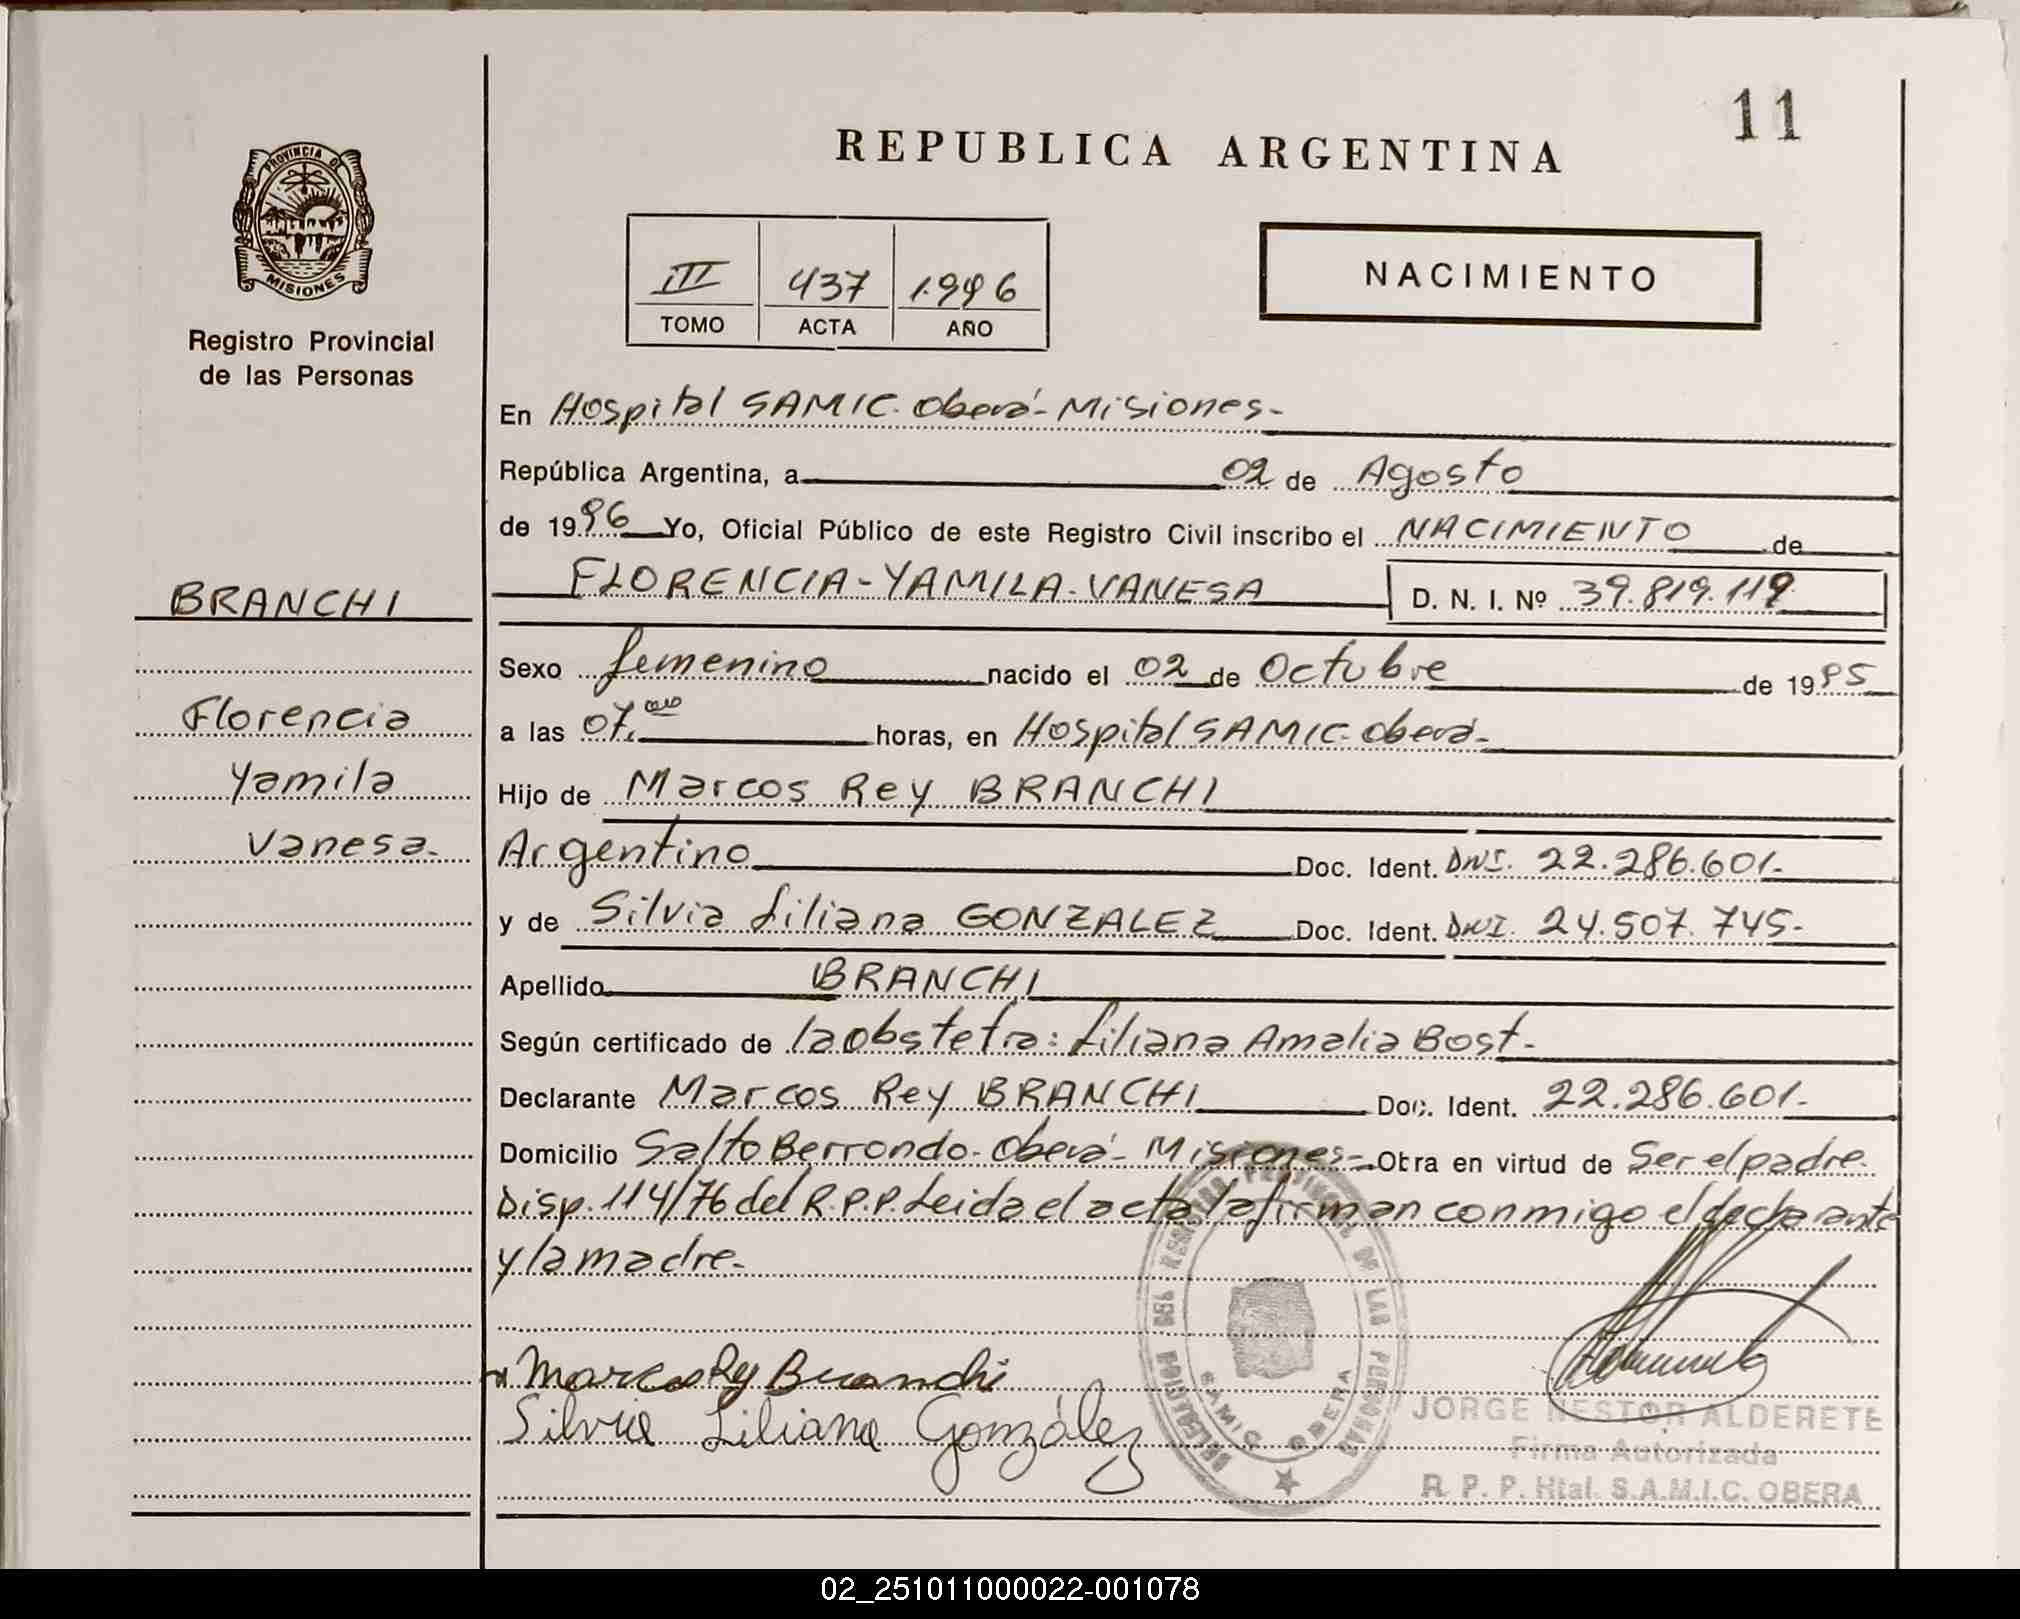 11
REPUBLICA ARGENTINA
PROVINCIA DE
MISIONES
Registro Provincial
de las Personas
III 437 1.996
TOMO ACTA AÑO
NACIMIENTO
BRANCHI
Florencia
Yamila
Vanesa.
En Hospital SAMIC. Oberá - Misiones -
República Argentina, a 02 de Agosto
de 1996 Yo, Oficial Público de este Registro Civil inscribo el NACIMIENTO de
FLORENCIA - YAMILA - VANESA D. N. I. Nº 39.819.119
Sexo femenino nacido el 02 de Octubre de 1995
a las 07. horas, en Hospital SAMIC - Oberá -
Hijo de Marcos Rey BRANCHI
Argentino Doc. Ident. DNI. 22.286.601.-
y de Silvia Liliana GONZALEZ Doc. Ident. DNI. 24.507.745.-
Apellido BRANCHI
Según certificado de la obstetra: Liliana Amalia Bost.-
Declarante Marcos Rey BRANCHI Doc. Ident. 22.286.601.-
Domicilio Salto Berrondo - Oberá - Misiones - Obra en virtud de Ser el padre.
Disp. 114/76 del R.P.P. Leida el acta la firman conmigo el declarante
y la madre.-
Marcos Rey Branchi
Silvia Liliana González
DELEGACION DEL REGISTRO PROVINCIAL DE LAS PERSONAS
SAMIC OBERA
JORGE NESTOR ALDERETE
Firma Autorizada
R. P. P. Htal. S.A.M.I.C. OBERA
02_251011000022-001078